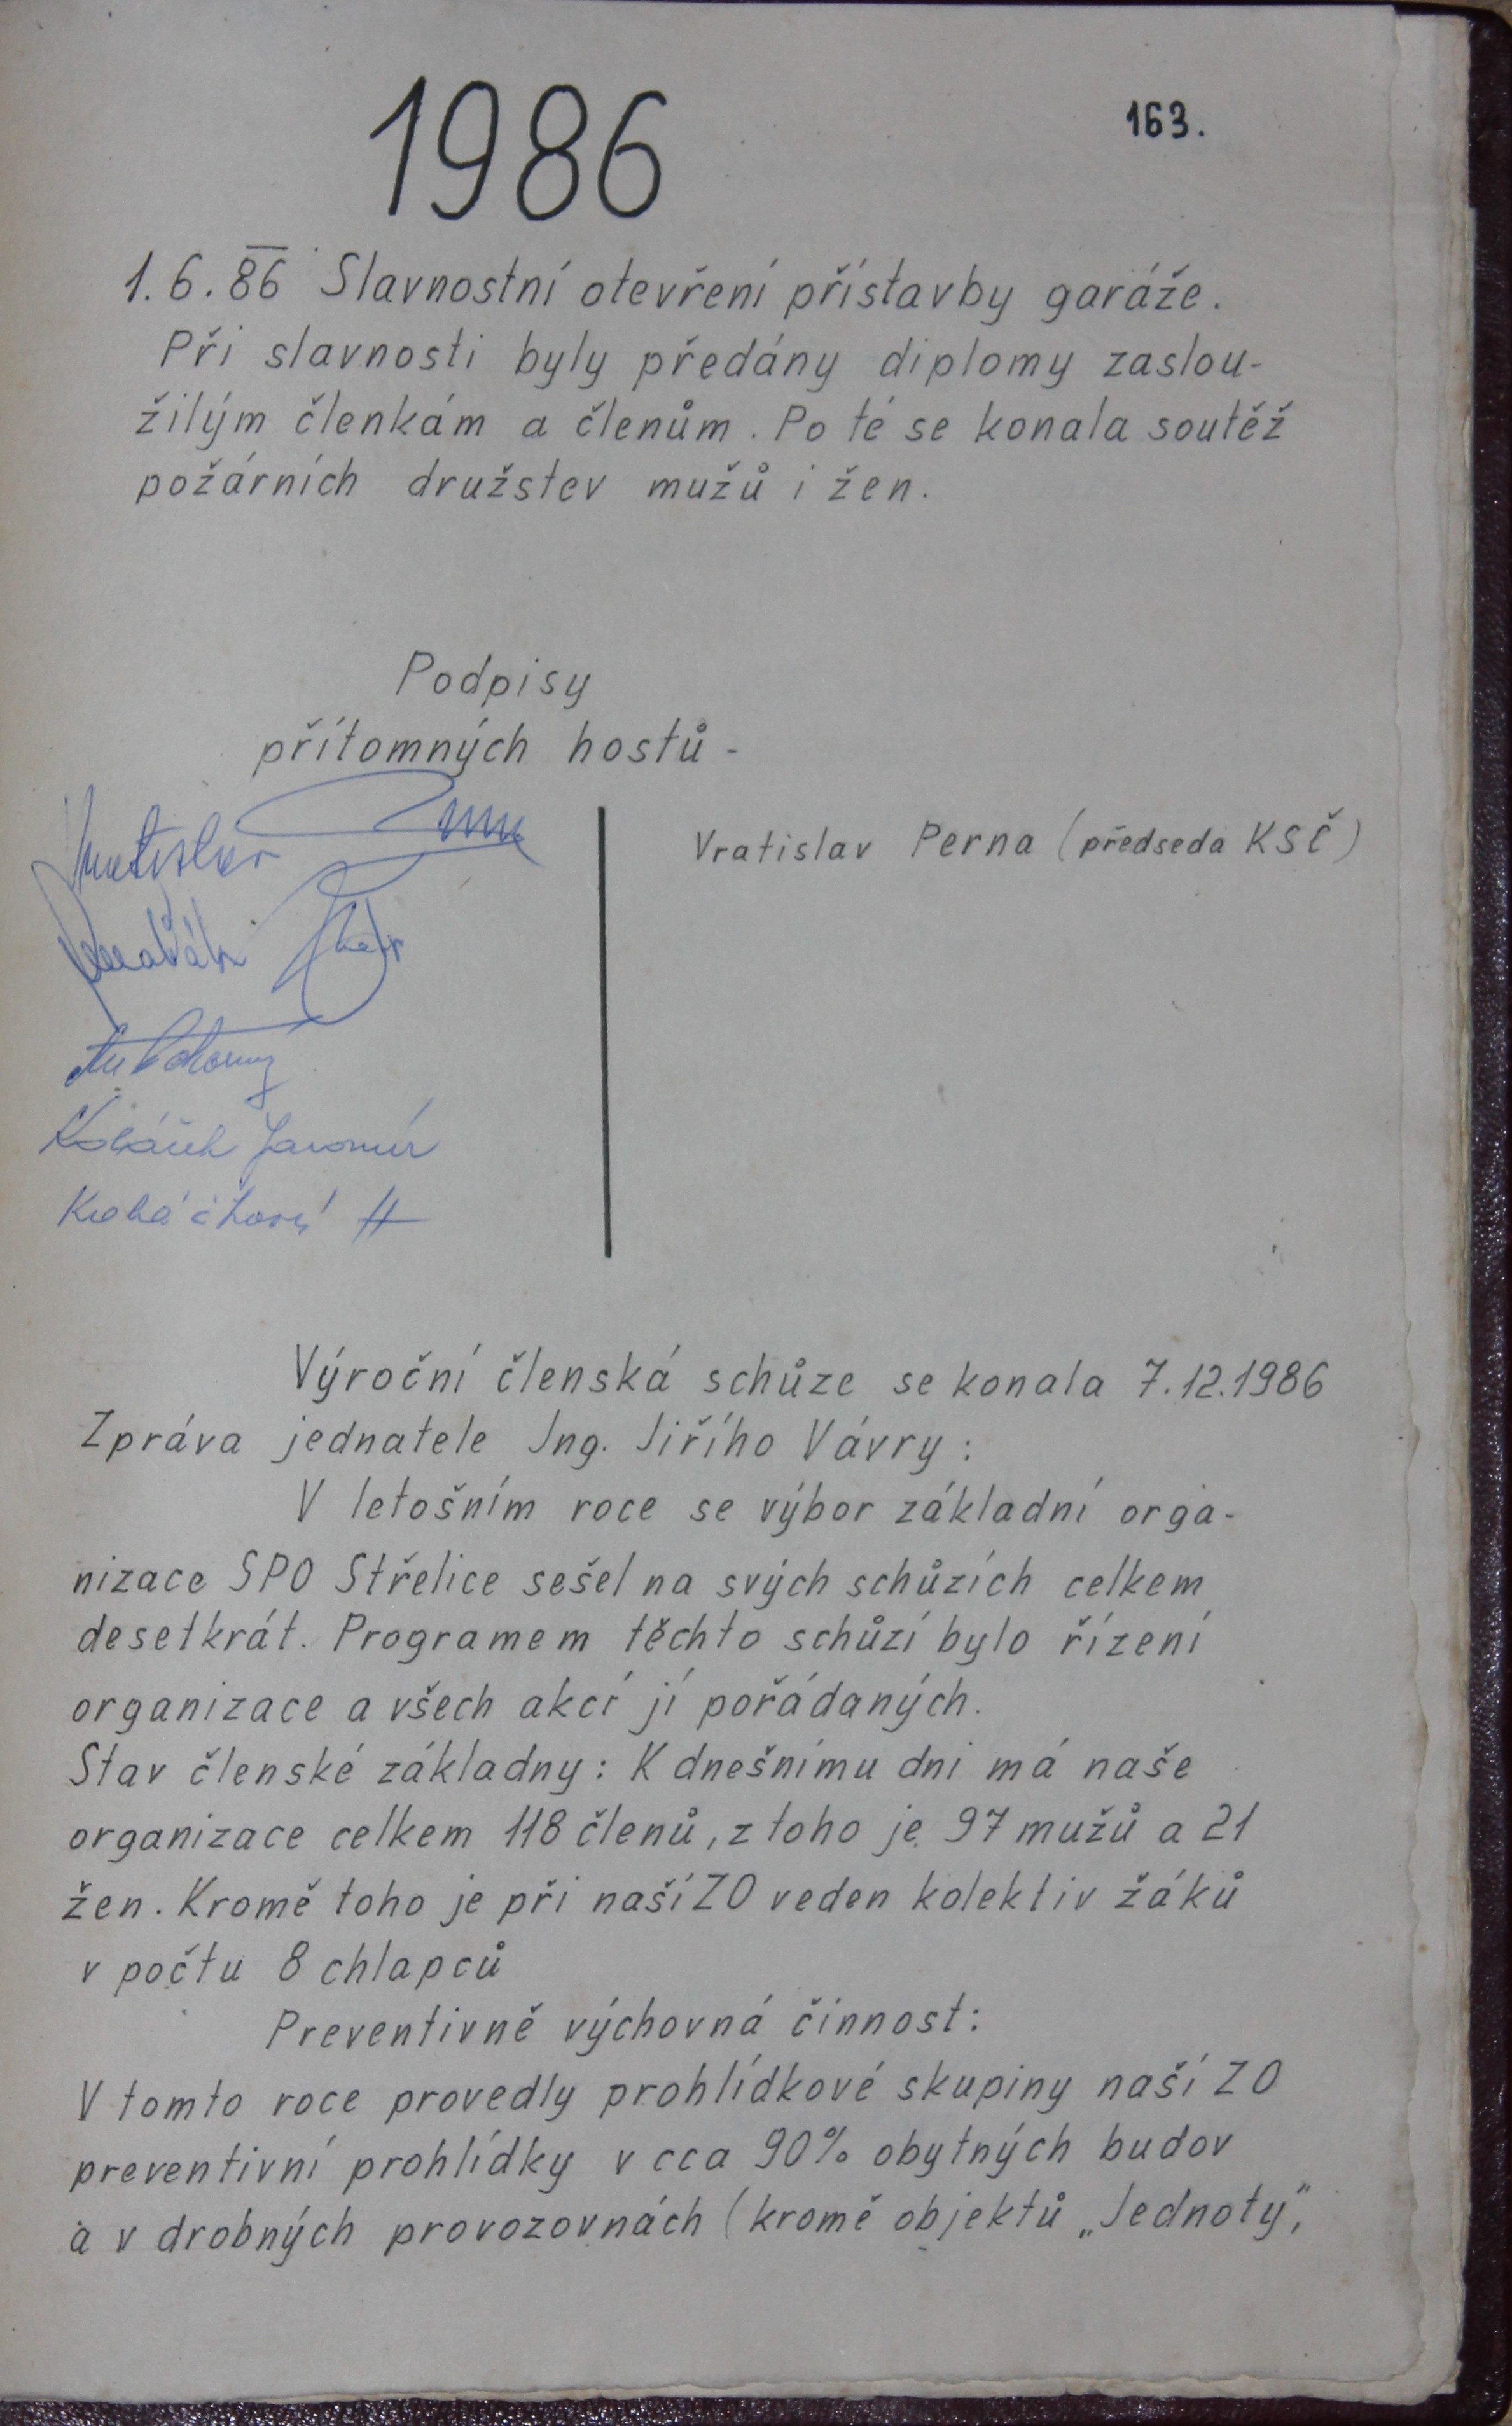 1986
163.
1.6.86 Slavnostní otevření přístavby garáže.
Při slavnosti byly předány diplomy zaslou-
žilým členkám a členům. Po té se konala soutěž
požárních družstev mužů i žen.
Podpisy
přítomných hostů -
Vratislav
Vratislav Perna (předseda KSČ)
Jaromír
Výroční členská schůze se konala 7.12.1986
Zpráva jednatele Ing. Jiřího Vávry:
V letošním roce se výbor základní orga-
nizace SPO Střelice sešel na svých schůzích celkem
desetkrát. Programem těchto schůzí bylo řízení
organizace a všech akcí jí pořádaných.
Stav členské základny: K dnešnímu dni má naše
organizace celkem 118 členů, z toho je 97 mužů a 21
žen. Kromě toho je při naší ZO veden kolektiv žáků
v počtu 8 chlapců
Preventivně výchovná činnost:
V tomto roce provedly prohlídkové skupiny naší ZO
preventivní prohlídky v cca 90% obytných budov
a v drobných provozovnách (kromě objektů „Jednoty",